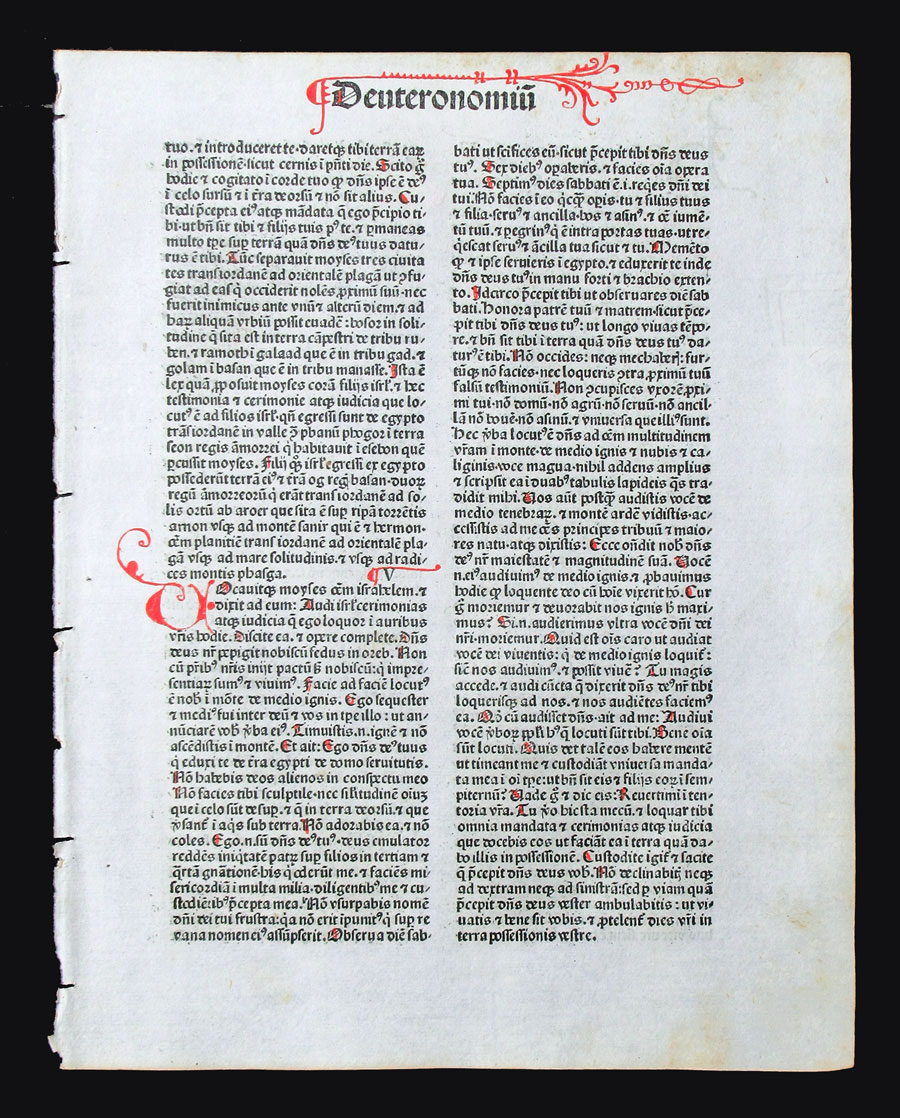 Deuteronomiū
tuo. ⁊ introduceret te. daretq; tibi terrā eaꝝ
in possessionē. sicut cernis ī p̄nti die. Scito g̊
hodie ⁊ cogitato ī corde tuo ꝙ dn̄s ipse ē deꝰ
ī celo sursū ⁊ ī t̄ra deorsū ⁊ nō sit alius. Cu-
stodi p̄cepta eiꝰ atq; mādata q̄ ego p̄cipio ti-
bi. ut bn̄ sit tibi ⁊ filijs tuis pꝰ te. ⁊ ꝑmaneas
multo tꝑe suꝑ terrā quā dn̄s deꝰ tuus datu-
rus ē tibi. Tūc separauit moyses tres ciuita
tes trans iordanē ad orientalē plagā ut ꝯfu-
giat ad eas q̇ occiderit nolēs ꝓximū suū. nec
fuerit inimicus ante vnū ⁊ alterū diem. ⁊ ad
haꝝ aliquā vrbiū possit euadē: bosor in soli-
tudine q̄ sita est in terra cāpestri de tribu ru-
ben. ⁊ ramoth ī galaad que ē in tribu gad. ⁊
golam ī basan que ē in tribu manasse. Ista ē
lex quā ꝓposuit moyses corā filijs isrł. ⁊ hec
testimonia ⁊ cerimonie atq; iudicia que lo-
cutꝰ ē ad filios isrł. qn̄ egressi sunt de egypto
trās iordanē in valle ꝯ̄ phanū phogor ī terra
seon regis āmorrei q̇ habitauit ī esebon quē
ꝑcussit moyses. Filij q̊ꝫ isrł egressi ex egypto
possederūt terrā eiꝰ ⁊ t̄rā og reḡ basan. duoꝝ
regū āmorreorū q̇ erāt trans iordanē ad so-
lis ortū ab aroer que sita ē suꝑ ripā torrētis
arnon vsq; ad montē sanir qui ē ⁊ hermon.
oēm planitiē trans iordanē ad orientalē pla-
gā vsq; ad mare solitudinis. ⁊ vsq; ad radi-
ces montis phasga. V
Vocauitq; moyses oēm israhelem. ⁊
dixit ad eum: Audi isrł cerimonias
atq; iudicia q̄ ego loquor ī auribus
vr̄is hodie. Discite ea. ⁊ opere complete. Dn̄s
deus nr̄ pepigit nobiscū fedus in oreb. Non
cū pr̄ibꝰ nr̄is inijt pactū ꝫ nobiscū: q̇ impre-
sentiaꝝ sumꝰ ⁊ viuimꝰ. Facie ad faciē locutꝰ
ē nob̄ ī mōte de medio ignis. Ego sequester
⁊ mediꝰ fui inter deū ⁊ vos in tꝑe illo: ut an-
nūciarē vob̄ v̄ba eiꝰ. Timuistis .n. ignē ⁊ nō
ascēdistis ī montē. Et ait: Ego dn̄s deꝰ tuus
q̇ eduxi te de t̄ra egypti de domo seruitutis.
Nō habebis deos alienos in conspectu meo
Nō facies tibi sculptile. nec sił̄itudinē oīuꝫ
que ī celo sūt desuꝑ. ⁊ q̄ in terra deorsū. ⁊ que
v̄sant̄ ī aq̇s sub terra. Nō adorabis ea. ⁊ nō
coles. Ego .n. sū dn̄s deꝰ tuꝰ. deus emulator
reddēs iniq̇tatē patꝝ suꝑ filios in tertiam ⁊
q̊rtā gn̄ationē. his q̇ oderūt me. ⁊ faciēs mi
sericordiā ī multa milia. diligentibꝰ me ⁊ cu-
stodiētibꝰ p̄cepta mea. Nō vsurpabis nomē
dn̄i dei tui frustra: q̇a nō erit īpunitꝰ q̇ suꝑ re
vana nomen eiꝰ assūpserit. Obserua diē sab-
bati ut scīfices eū. sicut p̄cepit tibi dn̄s deus
tuꝰ. Sex diebꝰ oꝑaberis. ⁊ facies oīa opera
tua. Septimꝰ dies sabbati ē .i. req̇es dn̄i dei
tui. Nō facies ī eo q̇cq̊ꝫ oꝑis. tu ⁊ filius tuus
⁊ filia. seruꝰ ⁊ ancilla. bos ⁊ asinꝰ. ⁊ oē iumē-
tū tuū. ⁊ ꝑegrinꝰ q̇ ē intra portas tuas. ut re-
q̇escat seruꝰ ⁊ ācilla tua sicut ⁊ tu. Memēto
ꝙ ⁊ ipse seruieris ī egypto. ⁊ eduxerit te inde
dn̄s deus tuꝰ in manu forti ⁊ brachio exten-
to. Idcirco p̄cepit tibi ut obseruares diē sab
bati. Honora patrē tuū ⁊ matrem. sicut p̄ce-
pit tibi dn̄s deus tuꝰ: ut longo viuas tēpo-
re. ⁊ bn̄ sit tibi ī terra quā dn̄s deus tuꝰ da-
turꝰ ē tibi. Nō occides: neq; mechaber̄: fur-
tūq; nō facies. nec loqueris ꝯtra ꝓximū tuū
falsū testimoniū. Non ꝯcupisces vxorē ꝓxi-
mi tui. nō domū. nō agrū. nō seruū. nō ancil-
lā nō bouē. nō asinū. ⁊ vniuersa que illiꝰ sunt.
Hec v̄ba locutꝰ ē dn̄s ad oēm multitudinem
vr̄am ī monte. de medio ignis ⁊ nubis ⁊ ca-
liginis. voce magua. nihil addens amplius
⁊ scripsit ea ī duabꝰ tabulis lapideis q̄s tra-
didit mihi. Uos aūt postq̊ꝫ audistis vocē de
medio tenebraꝝ. ⁊ montē ardē vidistis. ac-
cessistis ad me oēs principes tribuū ⁊ maio-
res natu. atq; dixistis: Ecce ondit nob̄ dn̄s
deꝰ nr̄ maiestatē ⁊ magnitudinē suā. Uocē
.n. eiꝰ audiuimꝰ de medio ignis. ⁊ ꝓbauimus
hodie ꝙ loquente deo cū hoīe vixerit hō. Cur
g̊ moriemur ⁊ deuorabit nos ignis h̄ maxi-
mus? Si .n. audierimus vltra vocē dn̄i dei
nr̄i. moriemur. Quid est oīs caro ut audiat
vocē dei viuentis: q̇ de medio ignis loquit̄:
sic̄ nos audiuimꝰ. ⁊ possit viuē? Tu magis
accede. ⁊ audi cūcta q̄ dixerit dn̄s deꝰ nr̄ tibi
loquerisq; ad nos. ⁊ nos audiētes faciemꝰ
ea. Qd̄ cū audisset dn̄s. ait ad me: Audiui
vocē v̄boꝝ pp̄li hꝰ q̄ locuti sūt tibi. Bene oīa
sūt locuti. Quis det talē eos habere mentē
ut timeant me ⁊ custodiāt vniuersa manda-
ta mea ī oī tꝑe: ut bn̄ sit eis ⁊ filijs eoꝝ ī sem-
piternū? Uade g̊ ⁊ dic eis: Reuertimī ī ten-
toria vr̄a. Tu v̊o hic sta mecū. ⁊ loquar tibi
omnia mandata ⁊ cerimonias atq; iudicia
que docebis eos ut faciāt ea ī terra quā da-
bo illis in possessionē. Custodite igit̄ ⁊ facite
q̄ p̄cepit dn̄s deus vob̄. Nō declinabit̄ neq;
ad dextram neq; ad sinistrā: sed ꝑ viam quā
p̄cepit dn̄s deus vester ambulabitis: ut vi-
uatis ⁊ bene sit vobis. ⁊ ꝓtelent̄ dies vr̄i in
terra possessionis vestre.